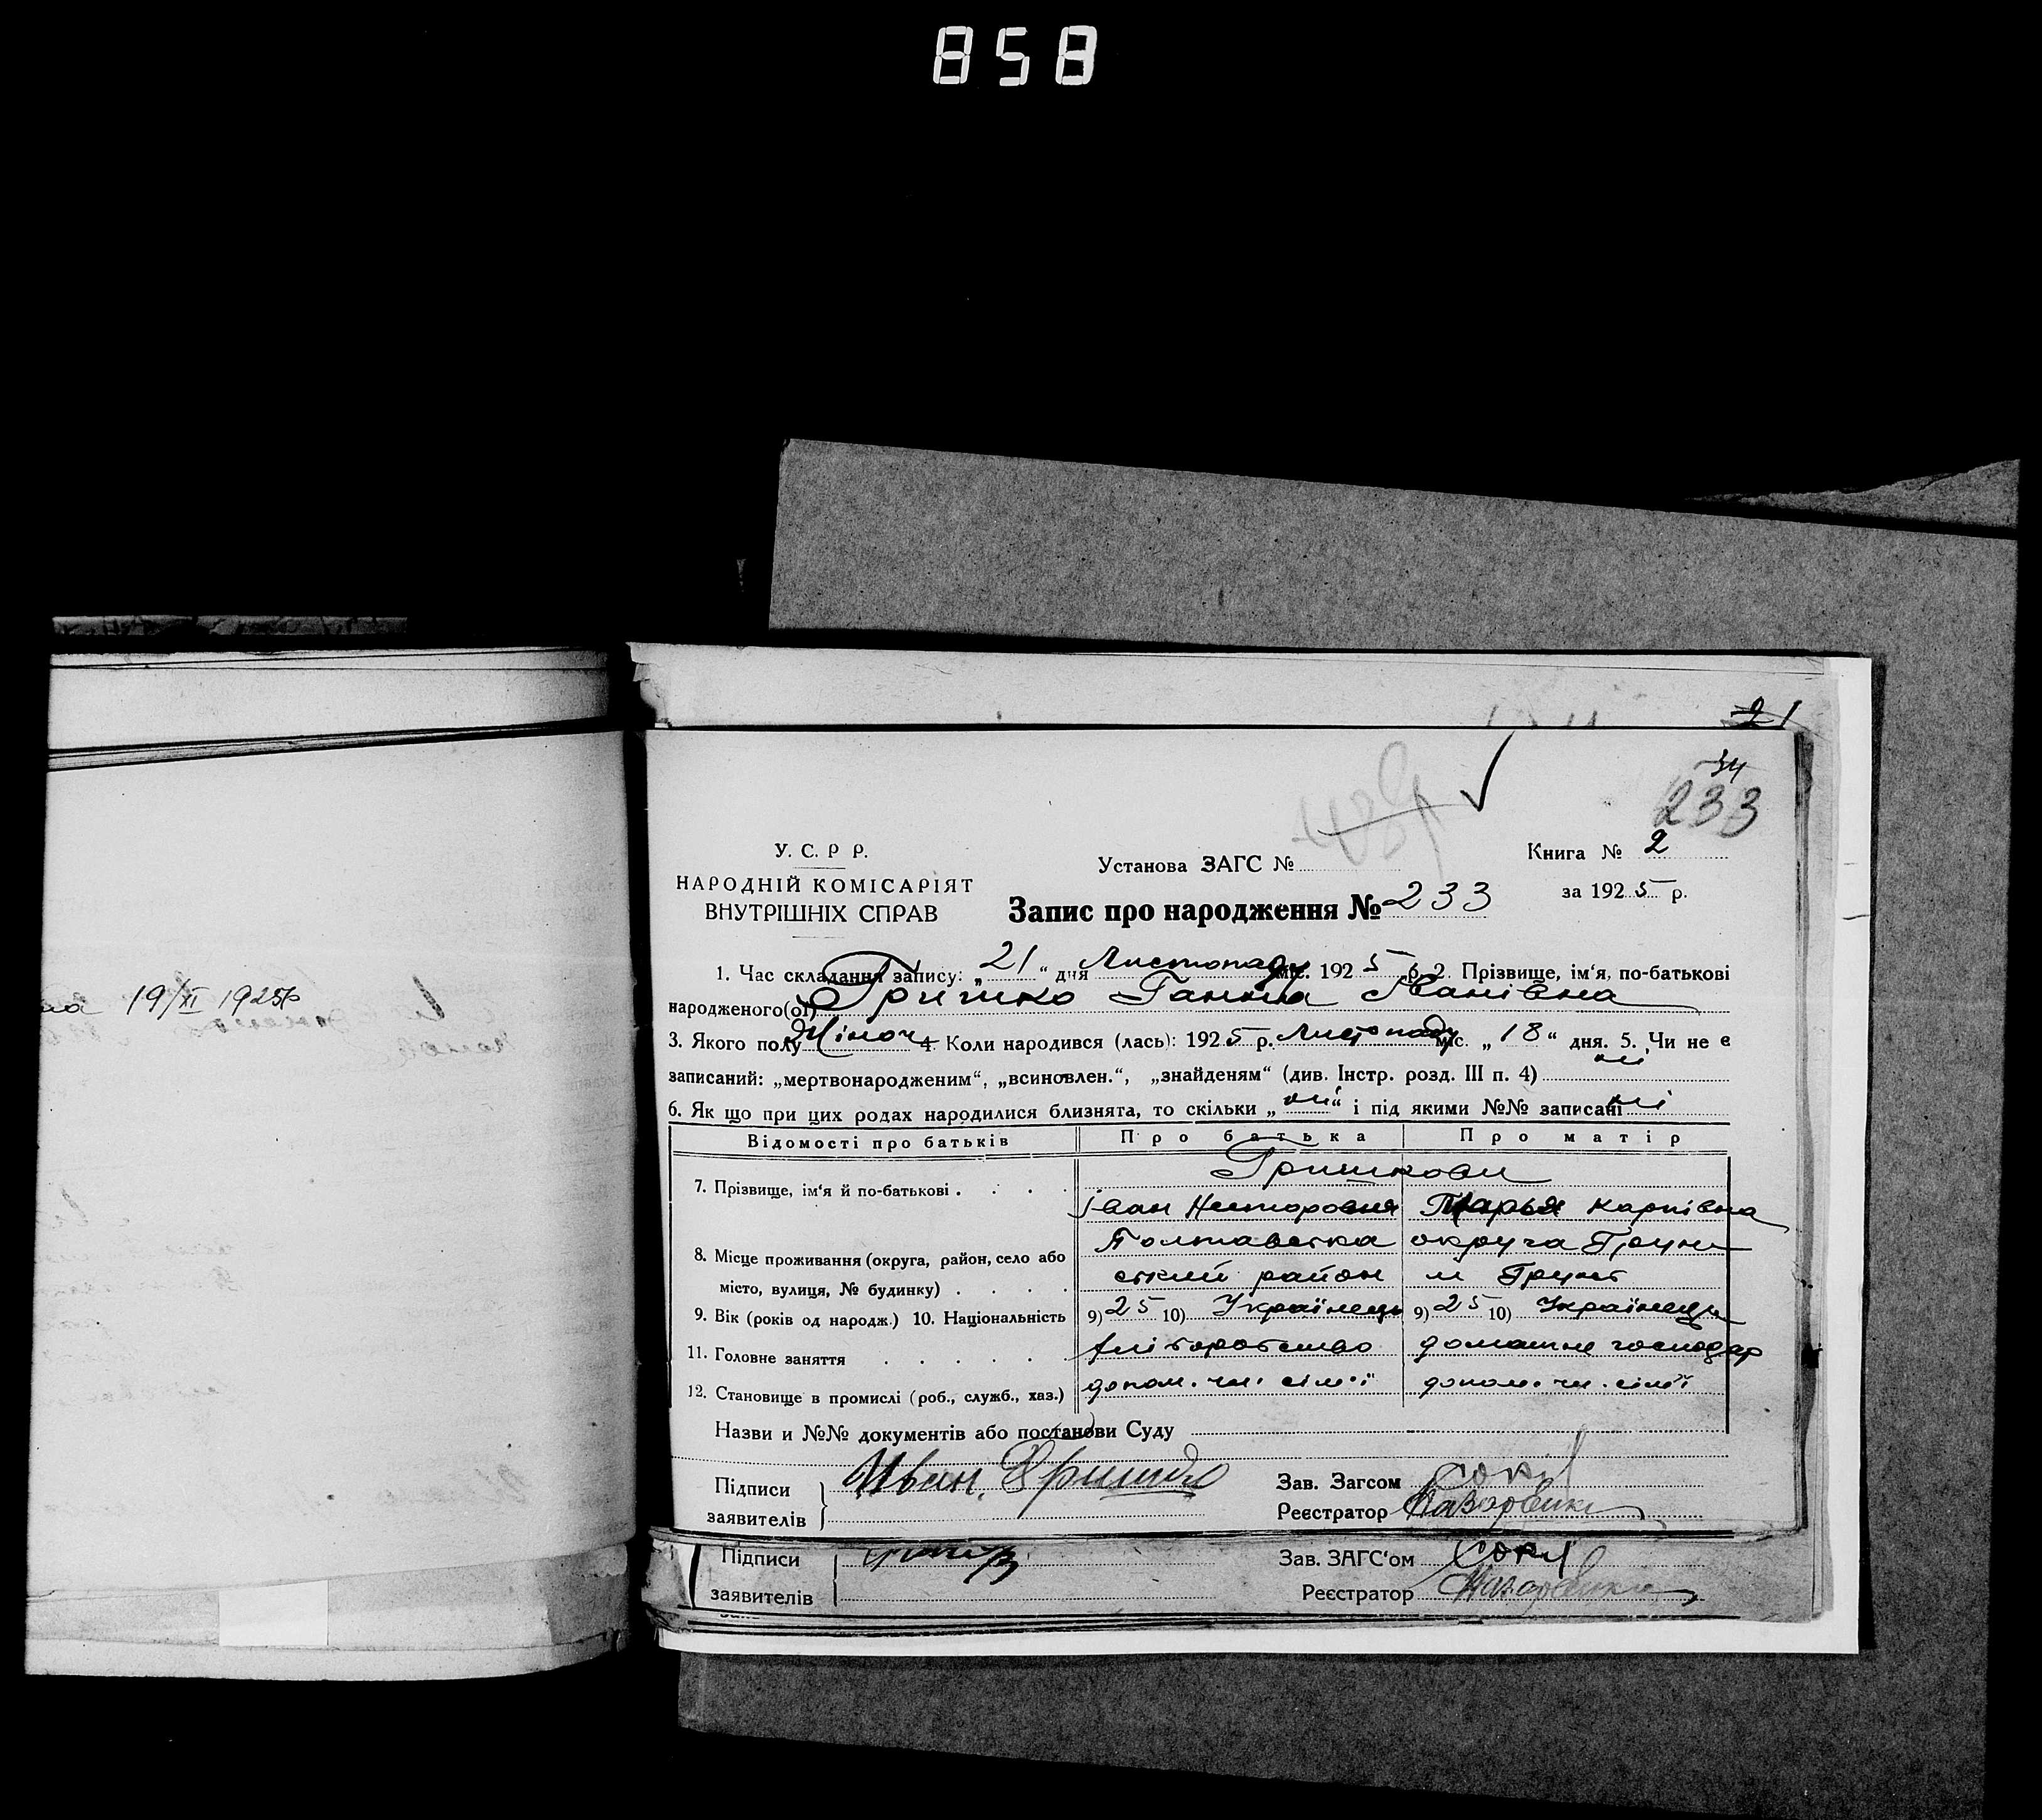 858
19/XI 1925р
21
34
233
У. С. Р Р.
НАРОДНІЙ КОМІСАРІЯТ
ВНУТРІШНІХ СПРАВ
Установа ЗАГС №
Книга № 2
за 1925 р.
Запис про народження № 233
1. Час складання запису: „21“ дня Листопаду міс. 1925 р. 2. Прізвище, ім‘я, по-батькові
народженого(ої) Гришко Ганна Іванівна
3. Якого полу Жіноч 4. Коли народився (лась): 1925 р. Листопаду міс. „18“ дня. 5. Чи не є
записаний: „мертвонародженим“, „всиновлен.“, „знайденям“ (див. Інстр. розд. III п. 4) ні
6. Як що при цих родах народилися близнята, то скільки „ні“ і під якими №№ записані ні
Відомості про батьків Про батька Про матір
Гришкови
7. Прізвище, ім‘я й по-батькові . . . . Іван Несторович Марья Карпівна
8. Місце проживання (округа, район, село або Полтавська округа Грунь
місто, вулиця, № будинку) . . . . ський район м Грунь
9. Вік (років од народж.) 10. Національність 9) 25 10) Українець 9) 25 10) Українець
11. Головне заняття . . . . . . хліборобство домашне господар
12. Становище в промислі (роб., служб., хаз.) допом. чл. сім'ї допом. чл. сім'ї
Назви и №№ документів або постанови Суду
Підписи Иван Гришко Зав. Загсом Сокіл
заявителів Реєстратор
Підписи Зав. ЗАГС‘ом Сокіл
заявителів Реєстратор